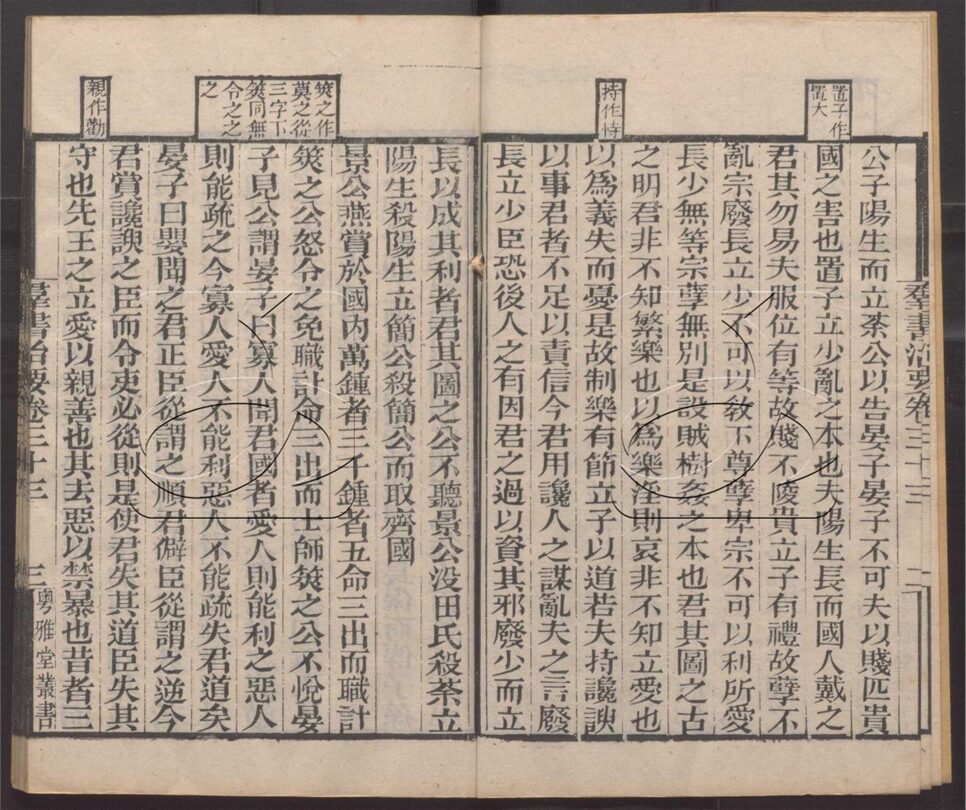 置子作
置大
持作恃
公子陽生而立荼公以告晏子晏子不可夫以賤匹貴
國之害也置子立少亂之本也夫陽生長而國人戴之
君其勿易夫服位有等故賤不陵貴立子有禮故孽不
亂宗廢長立少不可以敎下尊孽卑宗不可以利所愛
長少無等宗孽無別是設賊樹姦之本也君其圖之古
之明君非不知繁樂也以爲樂淫則哀非不知立愛也
以爲義失而憂是故制樂有節立子以道若夫持讒諛
以事君者不足以責信今君用讒人之謀亂夫之言廢
長立少臣恐後人之有因君之過以資其邪廢少而立
羣書治要卷三十三
二
筴之作
蓂之從
三字下
筴同無
令之之
之
親作勸
長以成其利者君其圖之公不聽景公没田氏殺荼立
陽生殺陽生立簡公殺簡公而取齊國
景公燕賞於國內萬鍾者三千鍾者五命三出而職計
筴之公怒令之免職計命三出而士師筴之公不悅晏
子見公謂晏子曰寡人聞君國者愛人則能利之惡人
則能疏之今寡人愛人不能利惡人不能疏失君道矣
晏子曰嬰聞之君正臣從謂之順君僻臣從謂之逆今
君賞讒諛之臣而令吏必從則是使君失其道臣失其
守也先王之立愛以親善也其去惡以禁暴也昔者三
羣書治要卷三十三
三
粵雅堂叢書